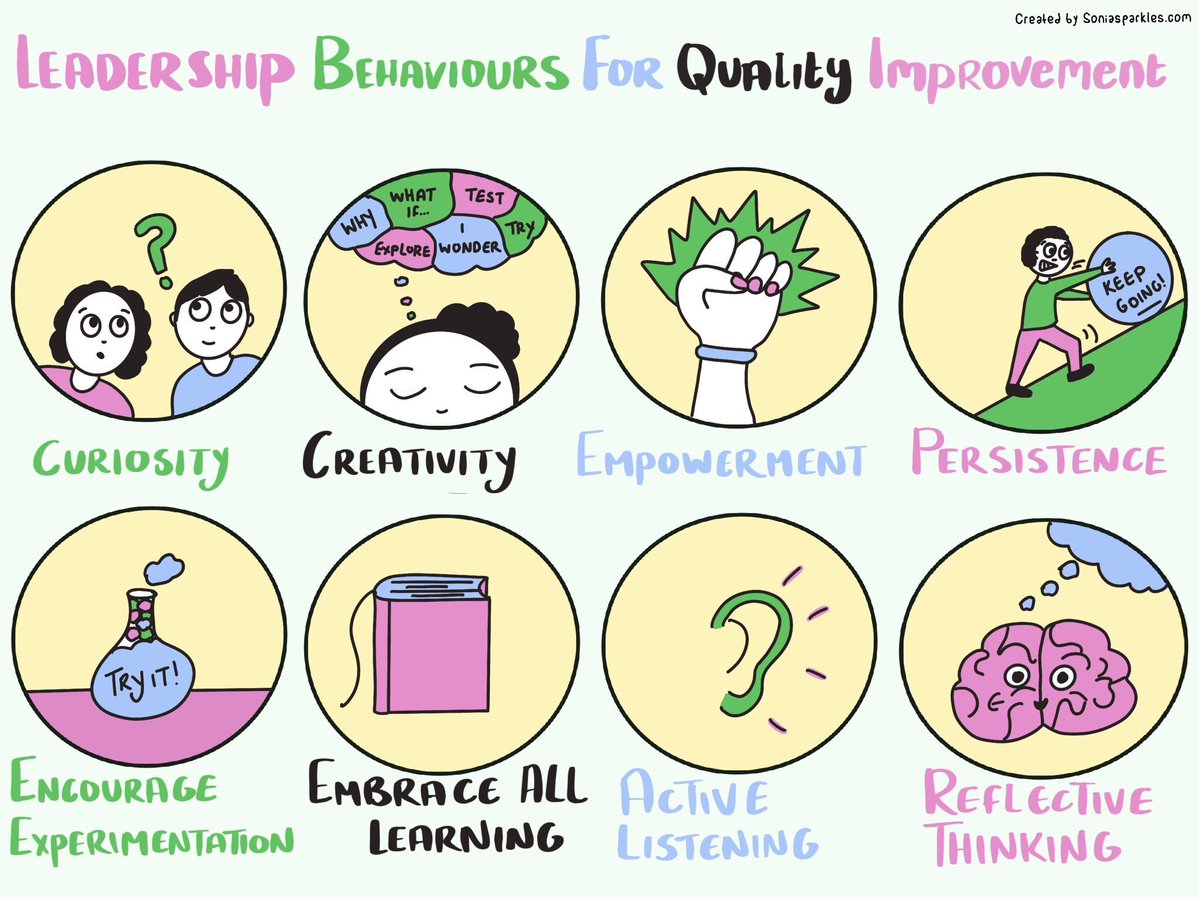 Created by Soniasparkles.com
LEADERSHIP BEHAVIOURS FOR QUALITY IMPROVEMENT
?
WHY
WHAT
IF...
TEST
EXPLORE
I
WONDER
TRY
KEEP
GOING!
CURIOSITY
CREATIVITY
EMPOWERMENT
PERSISTENCE
TRY IT!
ENCOURAGE
EXPERIMENTATION
EMBRACE ALL
LEARNING
ACTIVE
LISTENING
REFLECTIVE
THINKING